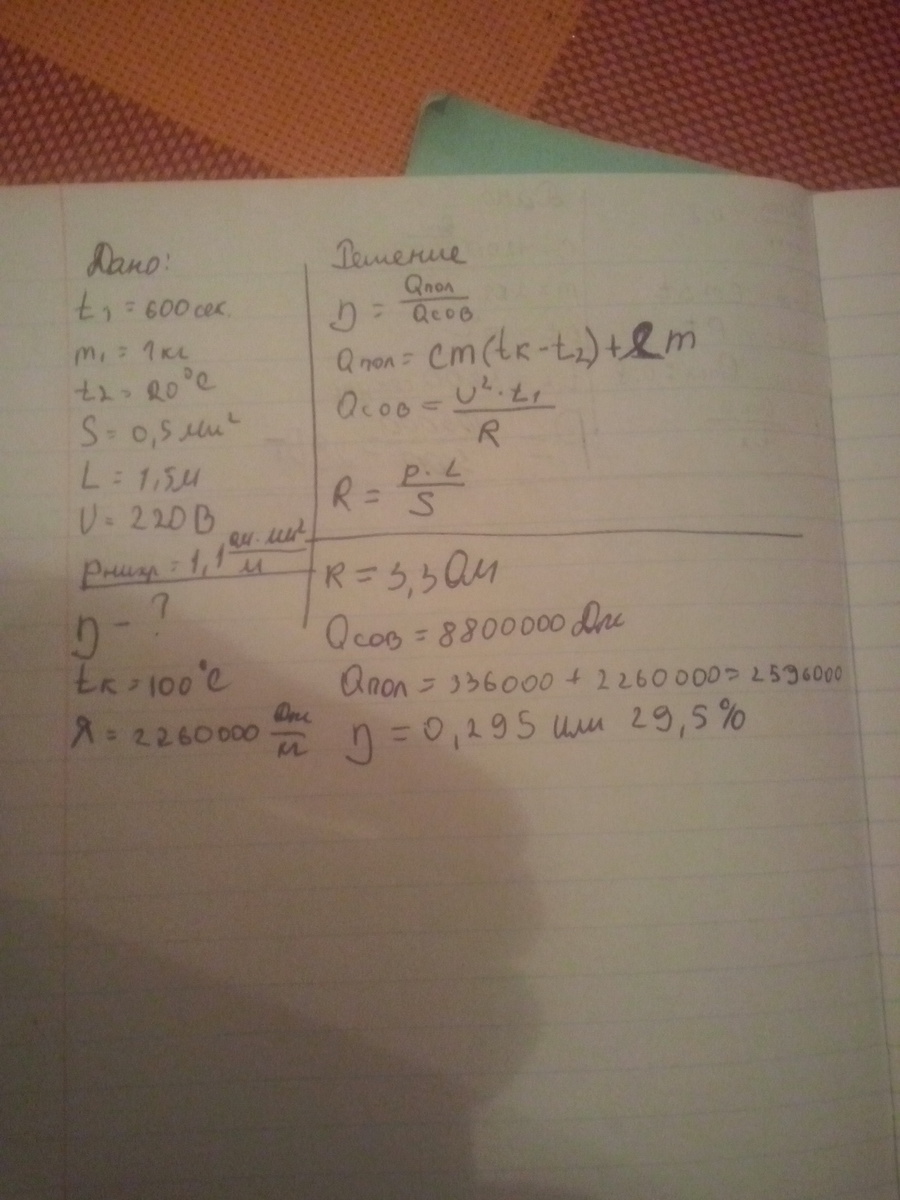 Дано:
t₁ = 600 сек.
m₁ = 1 кг
t₂ = 20°C
S = 0,5 мм²
L = 1,5 м
U = 220 В
ρнихр = 1,1 Ом·мм²/м
η - ?
tк = 100°C
λ = 2260000 Дж/кг
Решение
η = Qпол/Qсов
Qпол = cm(tк - t₂) + Lm
Qсов = U²·t₁/R
R = ρ·L/S
R = 3,3 Ом
Qсов = 8800000 Дж
Qпол = 336000 + 2260000 = 2596000
η = 0,295 или 29,5%